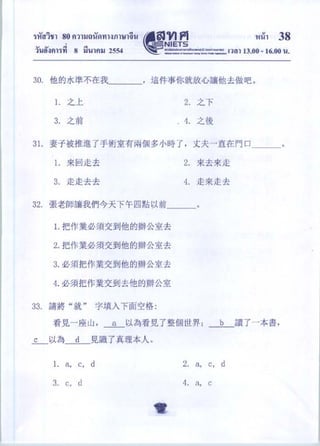 รหัสวิชา 80 ความถนัดทางภาษาจีน
สทศ
NIETS
หน้า 38
วันอังคารที่ 8 มีนาคม 2554
เวลา 13.00 - 16.00 น.
30. 他的水準不在我________，這件事你就放心讓他去做吧。
1. 之上
2. 之下
3. 之前
4. 之後
31. 妻子被推進了手術室有兩個多小時了，丈夫一直在門口______。
1. 來回走去
2. 來去來走
3. 走走去去
4. 走來走去
32. 張老師讓我們今天下午四點以前______。
1.把作業必須交到他的辦公室去
2.把作業必須交到他的辦公室去
3.必須把作業交到他的辦公室去
4.必須把作業交到去他的辦公室
33. 請將“就” 字填入下面空格:
看見一座山，__a__以為看見了整個世界；__b__讀了一本書，
__c__以為__d__見識了真理本人。
1. a, c, d
2. a, c, d
3. c, d
4. a, c